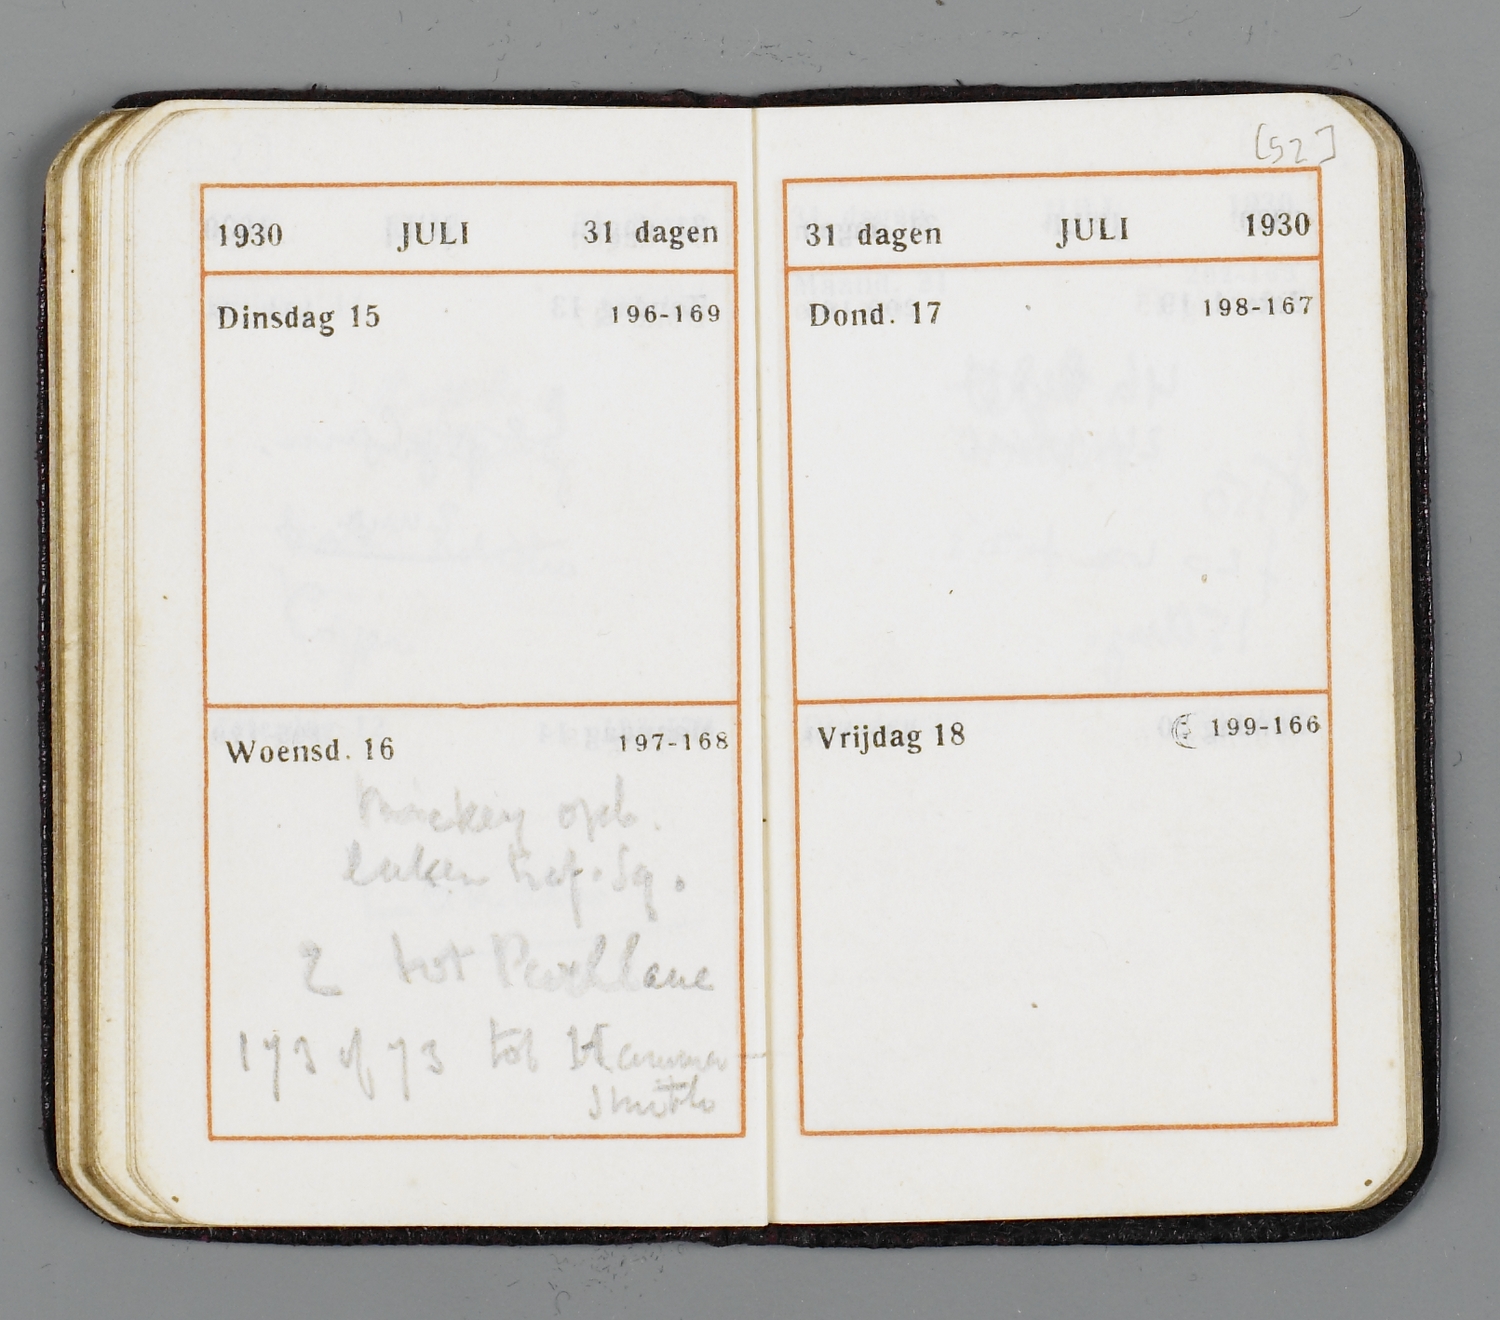 1930 JULI 31 dagen
Dinsdag 15 196-169
Woensd. 16 197-168
Mickey opb.
Traf. Sq.
2 tot
173 of 73 tot Hammer
smith
[52]
31 dagen JULI 1930
Dond. 17 198-167
Vrijdag 18 199-166